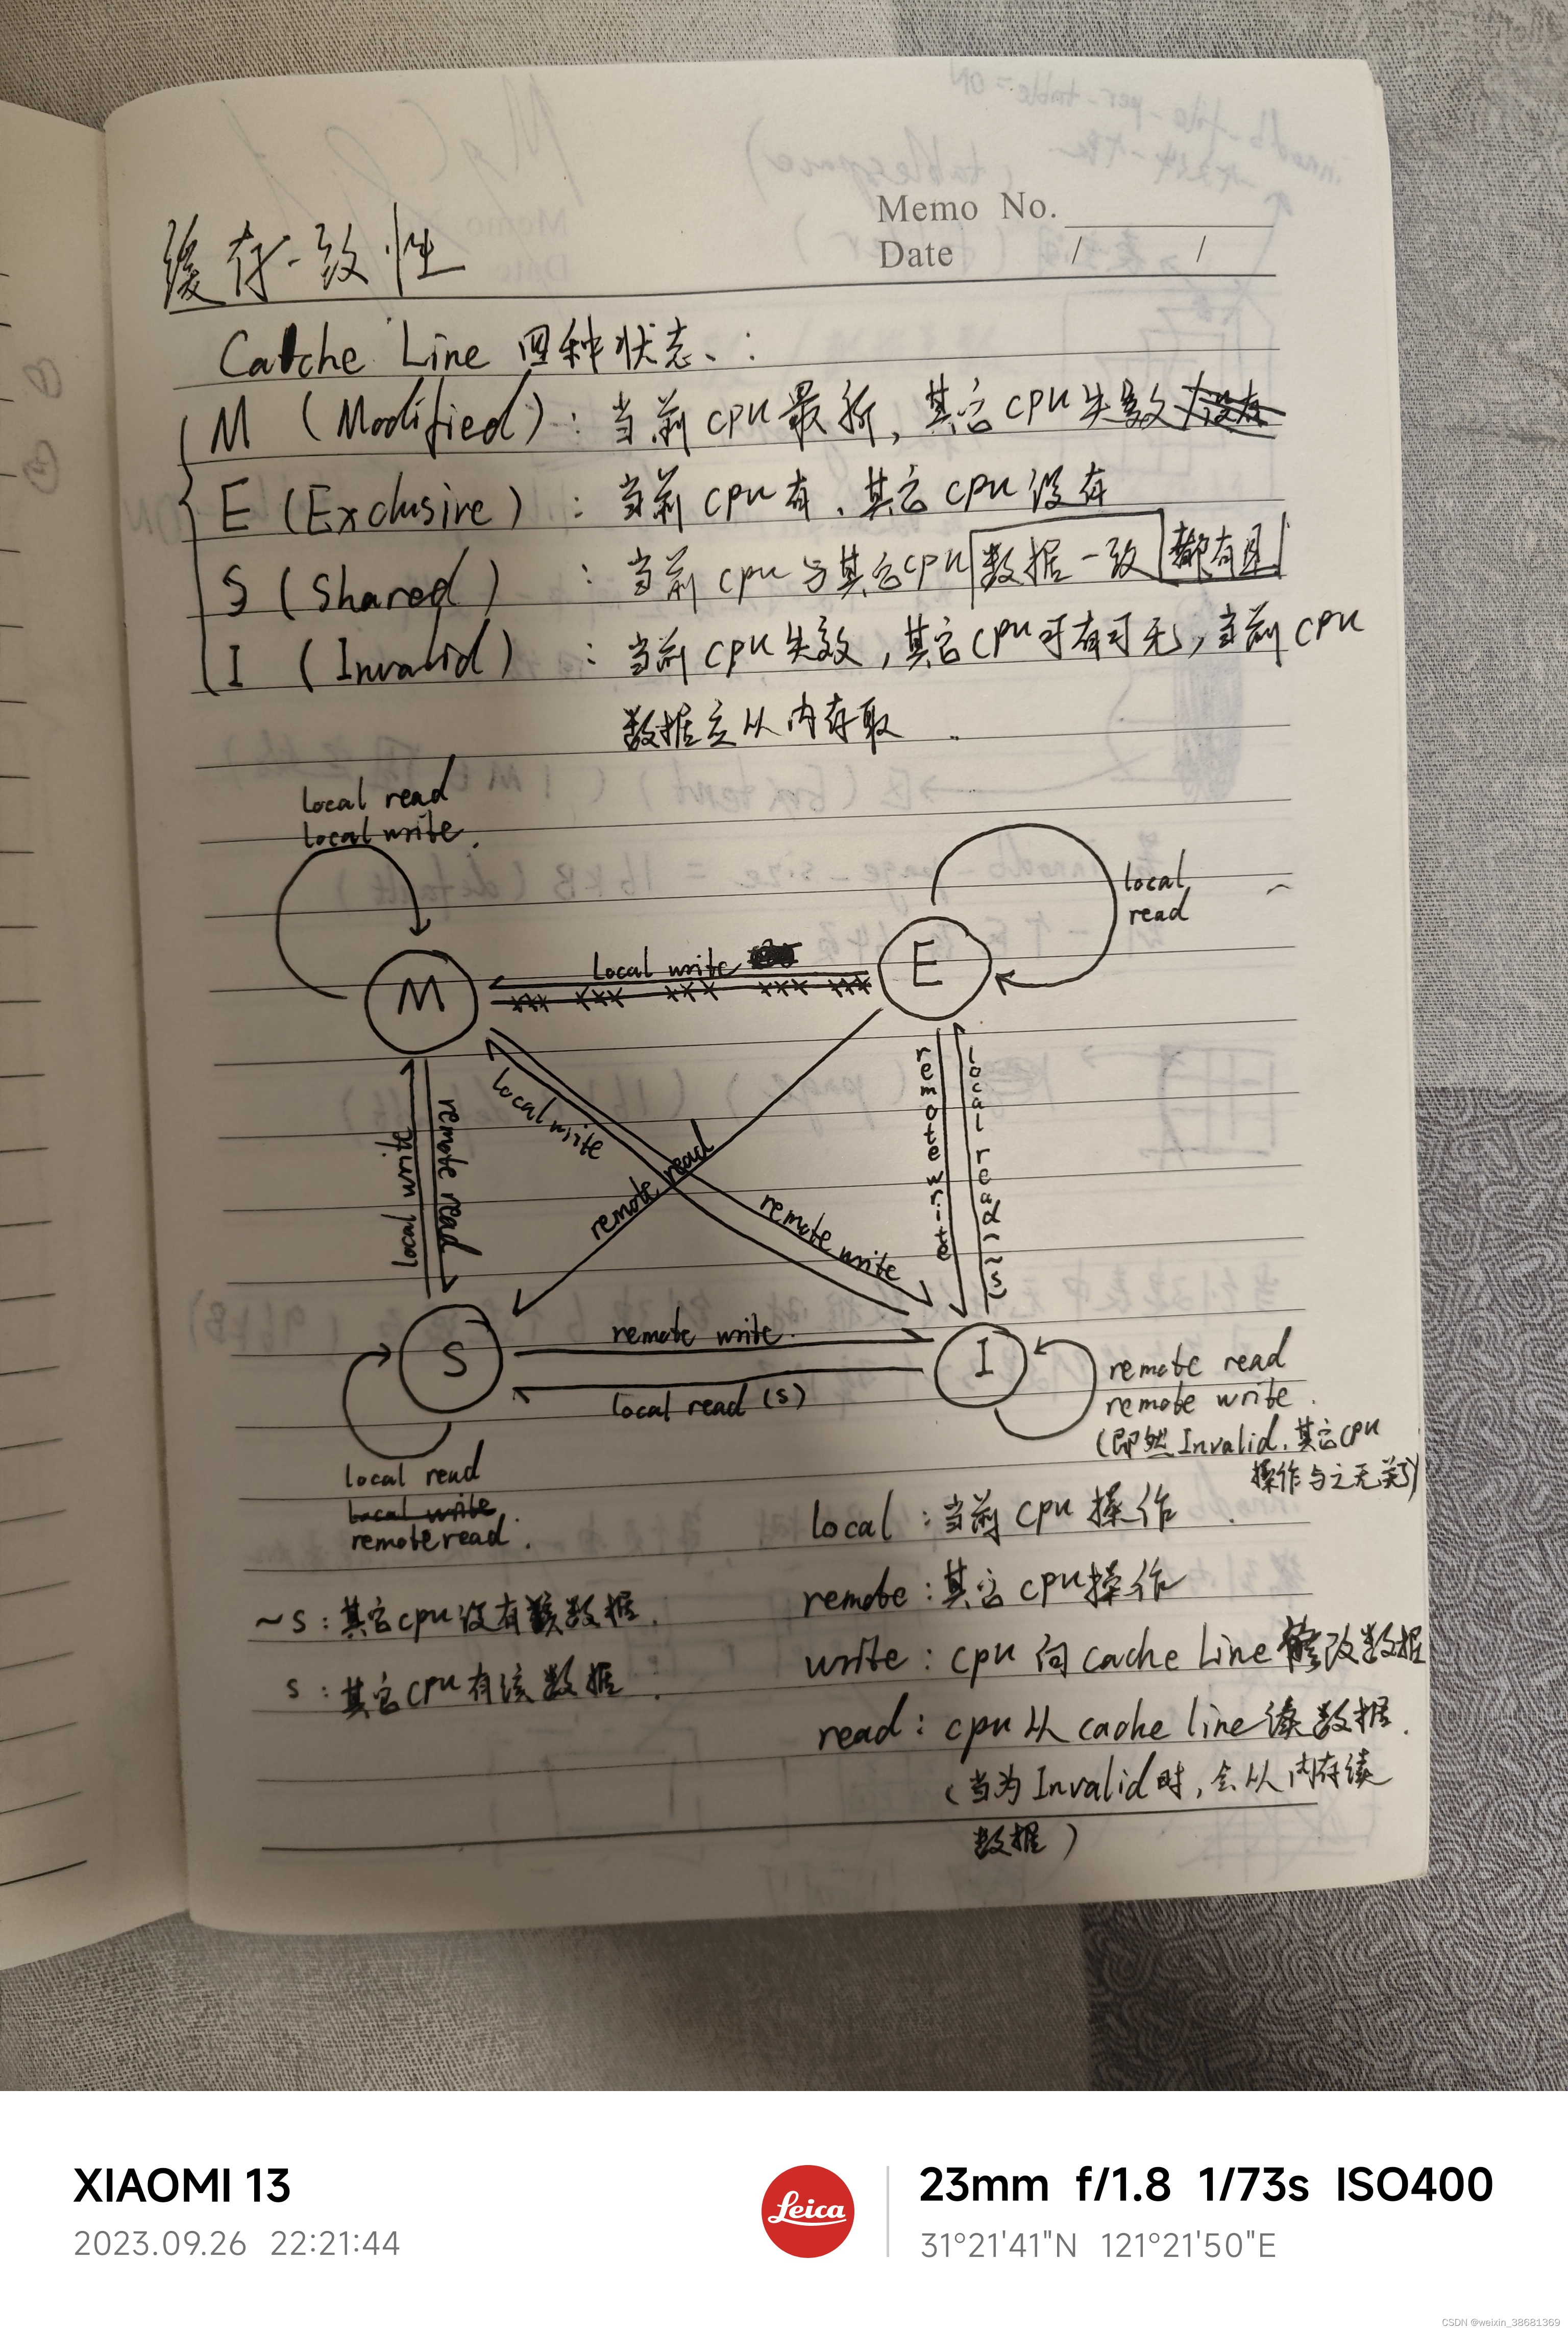 Memo No.
Date / /
缓存一致性
Catche Line 四种状态、:
M (Modified) : 当前 cpu 最新, 其它 cpu 失效
E (Exclusive) : 当前 cpu 有, 其它 cpu 没有
S (Shared) : 当前 cpu 与其它 cpu 数据一致 都有且
I (Invalid) : 当前 cpu 失效, 其它 cpu 可有可无, 当前 cpu
数据应从内存取.
local read
local write.
local
read
M
local write
E
remote write
local read (~s)
local write
local write
remote read
remote read
remote write
S
remote write.
I
local read (s)
remote read
remote write.
(即然 Invalid, 其它 cpu
操作与之无关了)
local read
local write
remote read.
local : 当前 cpu 操作.
remote : 其它 cpu 操作
~s : 其它 cpu 没有该数据.
write : cpu 向 cache line 修改数据
s : 其它 cpu 有该数据.
read : cpu 从 cache line 读数据.
(当为 Invalid 时, 会从内存读
数据)
XIAOMI 13
2023.09.26 22:21:44
Leica
23mm f/1.8 1/73s ISO400
31°21'41"N 121°21'50"E
CSDN @weixin_38681369